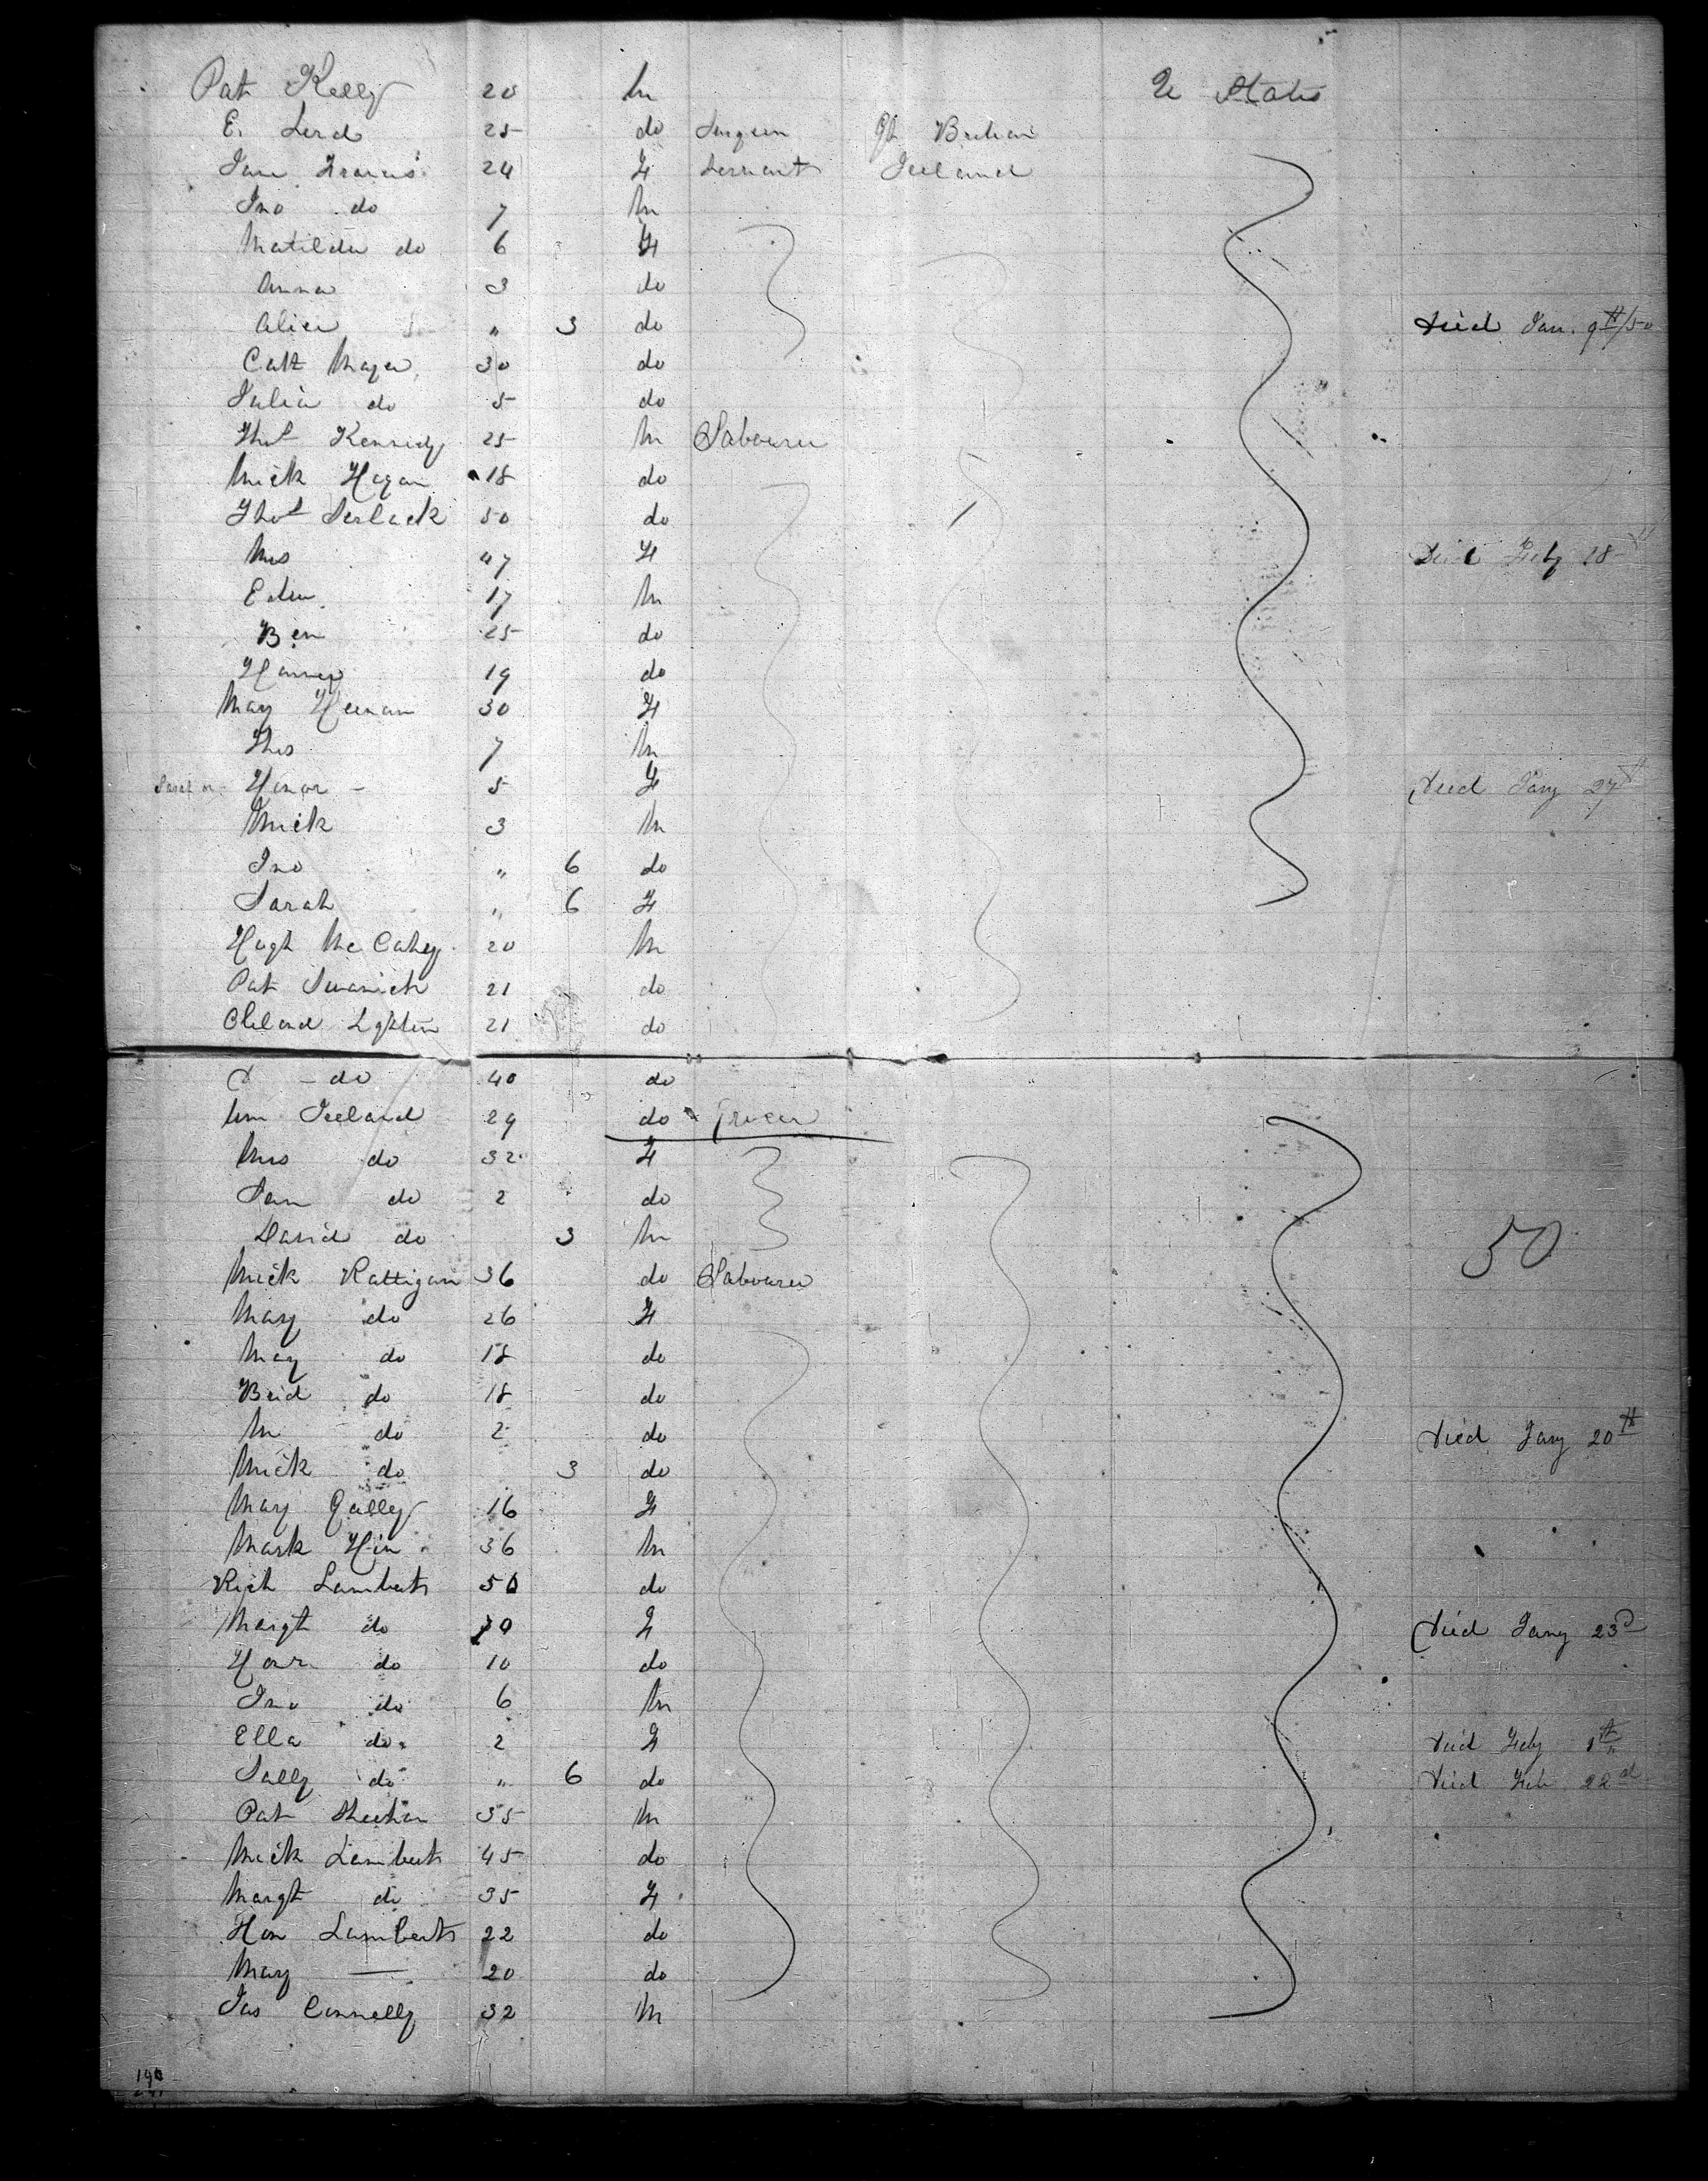 Pat Kelly 20 M U States
E. Lord 25 do Surgeon Gt Britain
Jane Francis 24 F Servant Ireland
Jno do 7 M
Matilda do 6 F
Anna 3 do
Alice " 3 do Died Jan. 9th/50
Cath Maga 30 do
Julia do 5 do
Thos Kennedy 25 M Labourer
Mick Hagan 18 do
Thos Serlack 50 do
Mrs 47 F Died Feby 18
Edm 17 M
Ben 25 do
Harvey 19 do
Mary Heenan 30 F
Thos 7 M
Sarah or Honor - 5 F Died Jany 27th
Mick 3 M
Jno " 6 do
Sarah " 6 F
Hugh McCahey 20 M
Pat Swanick 21 do
Cleland 21 do
- do 40 do
Wm Ireland 29 do Grocer
Mrs do 32 F
Jane do 2 do
David do 3 M
50
Mick Rattigan 36 do Labourer
Mary do 26 F
Mary do 18 do
Brid do 18 do
M do 2 do Died Jany 20th
Mick do 3 do
Mary Gally 16 F
Mark Hin 36 M
Rich Lambert 50 do
Margt do 30 F Died Jany 23d
Honr do 10 do
Jno do 6 M
Ella do 2 F Died Feby 1st
Sally do " 6 do Died Feb 22d
Pat Sheehan 35 M
Mick Lambert 45 do
Margt do 35 F
Hon Lambert 22 do
Mary — 20 do
Jas Connelly 32 M
190